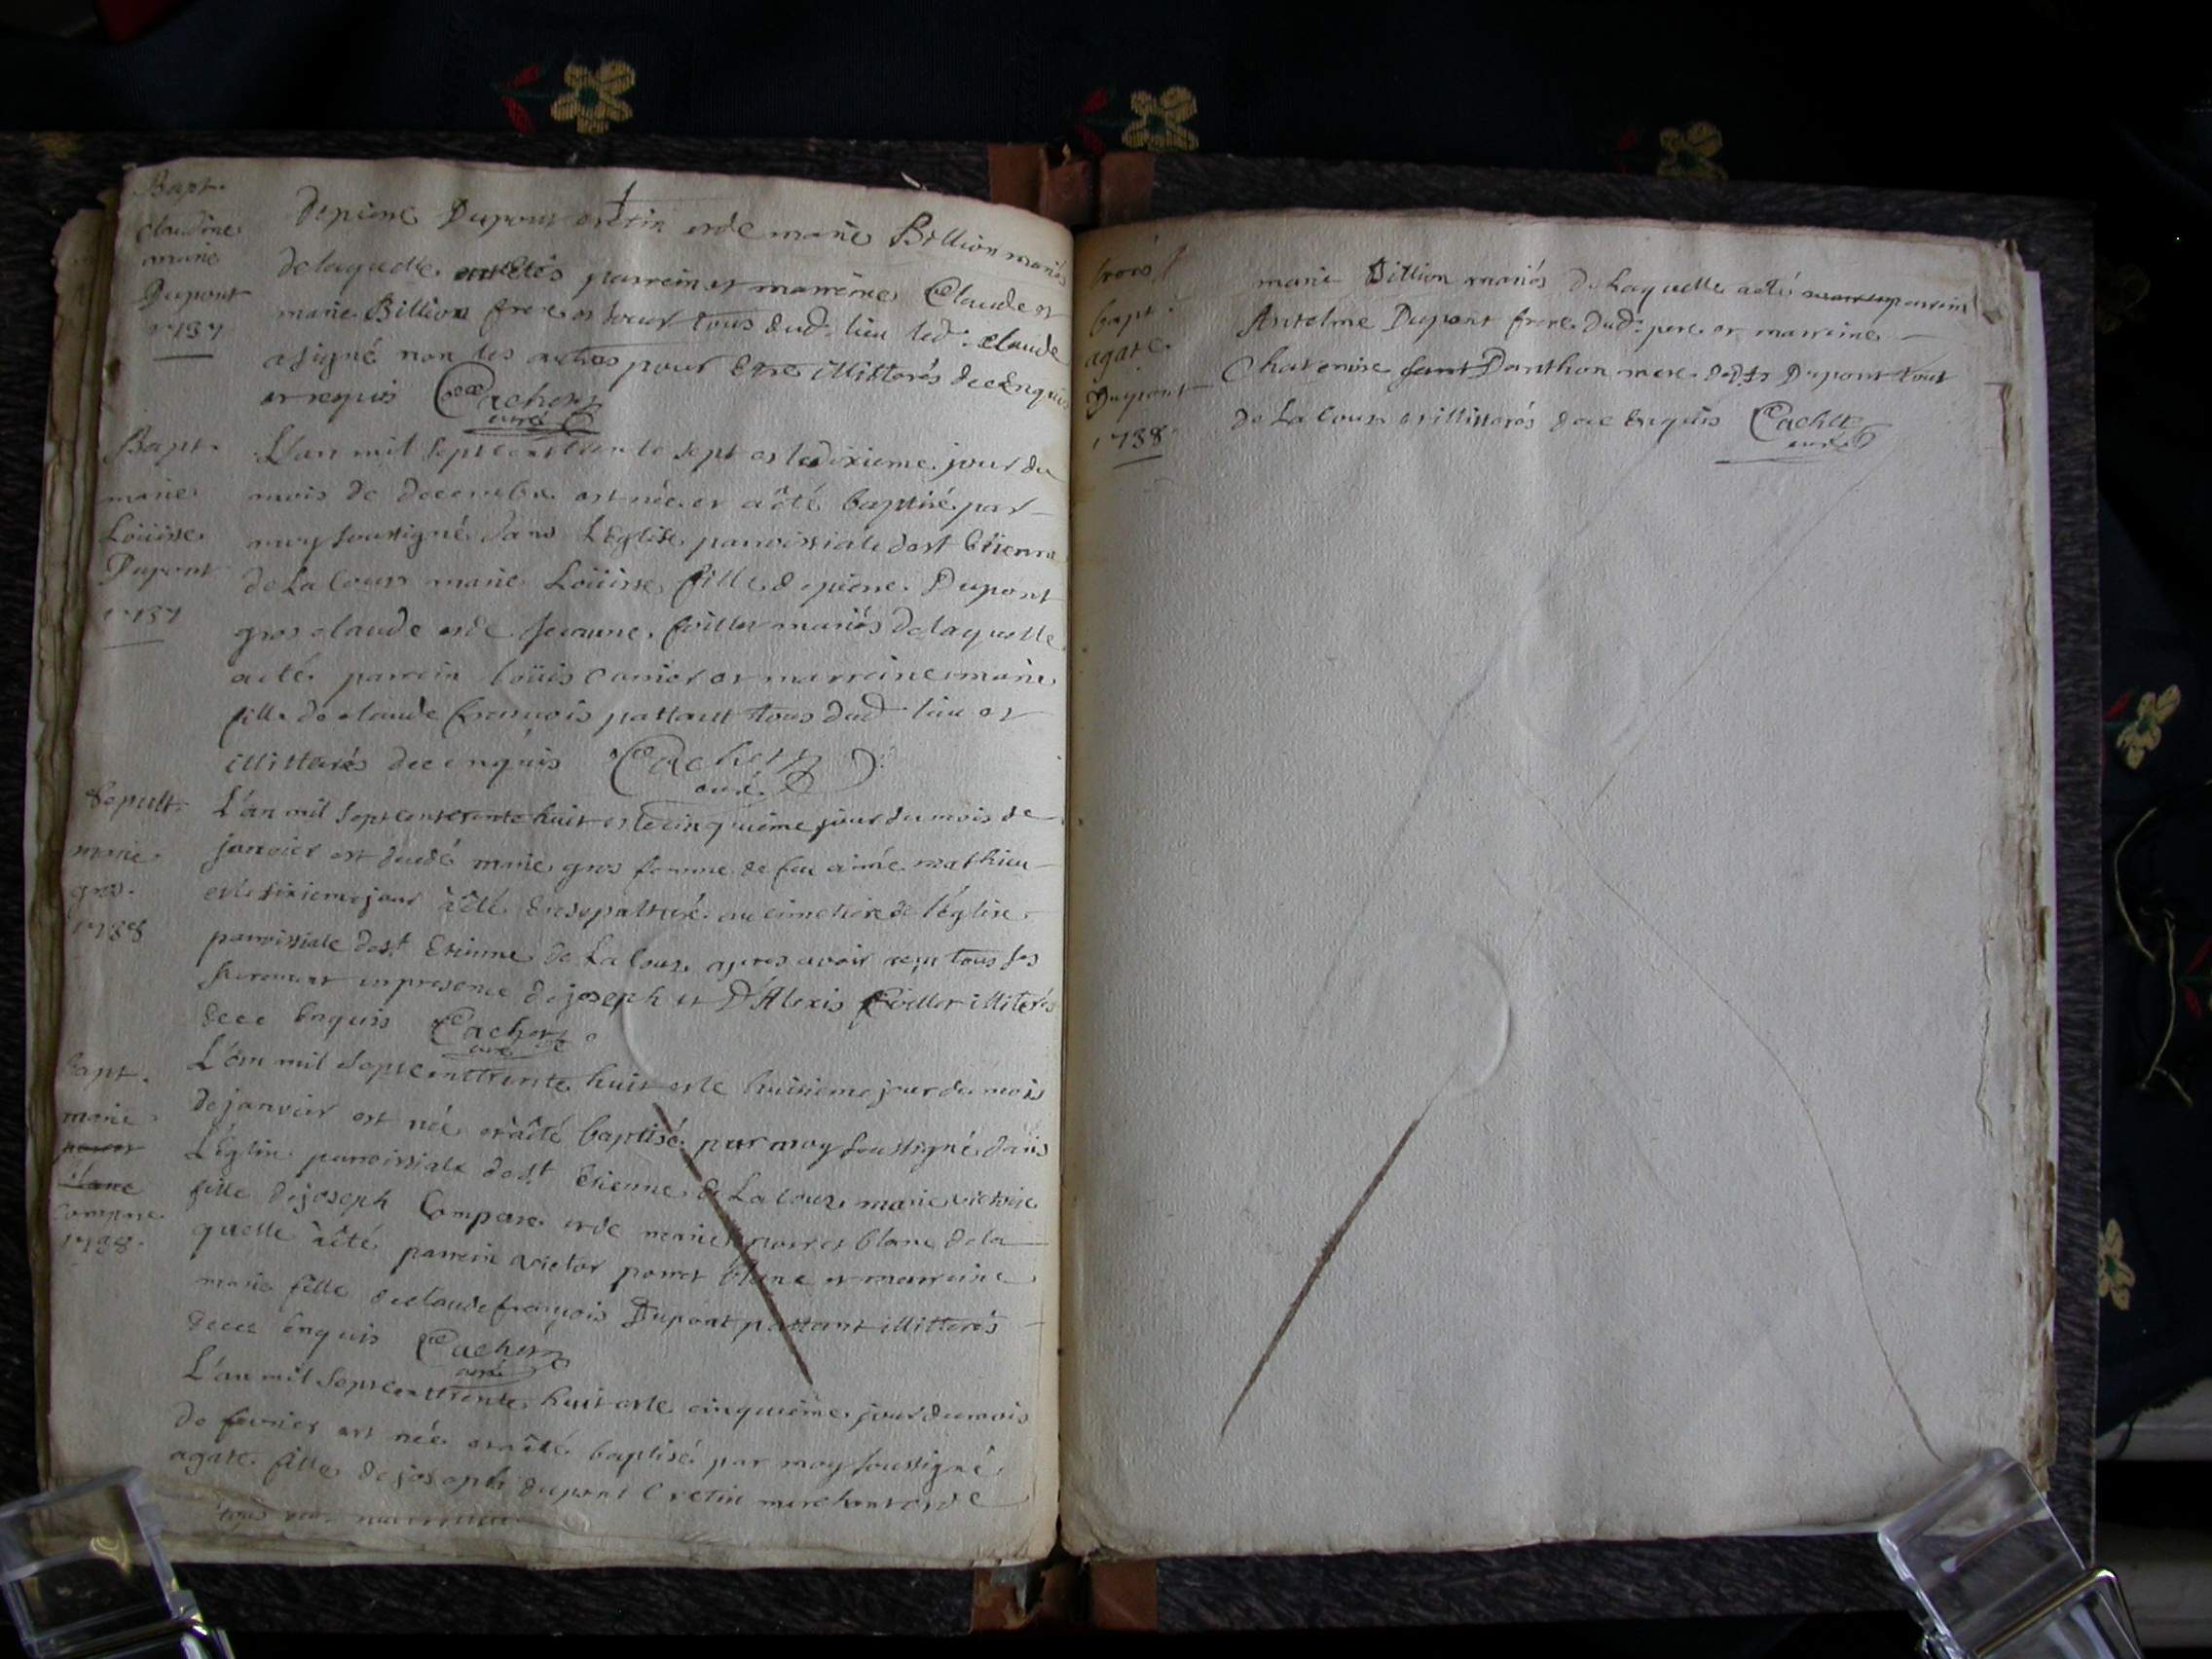 Bapt.
claudine
marie
Dupont
1737
depierre Dupont cretin et de marie Billion mariés
delaquelle ont etés parrein et marreine Claude et
marie Billion frere et soeur tous dud. lieu led. claude
a signé non les autres pour Etre illitterés dece Enquis
et requis Cachet
curé
Bapt.
marie
Loüisse
Dupont
1737
L'an mil sept cent trente sept et le dixieme jour du
mois de decembre est née et a été baptisé par
moy soussigné dans l'Eglise parroissiale de st Etienne
de La Couz marie Loüisse fille de pierre Dupont
gros claude et de jeanne mariés delaquelle
a eté parrein loüis et marreine marie
fille de claude françois pattaut tous dud. lieu et
illitterés dece enquis Cachet
curé
Sepult.
marie
gros.
1738
L'an mil sept cent trente huit et le cinquieme jour du mois de
janvier est decedé marie gros femme de feu aimé mathieu
et le sixieme jour a été ensepulturé au cimetiere de l'église
parroissiale de st Etienne de La Couz apres avoir reçu tous ses
sacrement en presence de joseph et D'Alexis illiterés
dece Enquis Cachet
curé
Bapt.
marie
blanc
Compare
1738.
L'an mil sept cent trente huit et le huitieme jour du mois
de janvier est née et a été baptisé par moy soussigné dans
L'église parroissiale de st Etienne de La Couz marie victoire
fille de joseph Compare et de marie porret blanc de la
quelle a été parrein victor porret blanc et marreine
marie fille de claude françois Dupont pattaut illitterés
dece enquis Cachet
curé
L'an mil sept cent trente huit et le cinquieme jour du mois
de fevrier est née et a été baptisé par moy soussigné
agate fille de joseph dupont cretin marchant et de
trois
bapt.
agate
Dupont
1738
marie Billion mariés de Laquelle a été parrein
Antelme Dupont frere dud. pere et marreine
Danthon mere Dupont tout
de La Couz et illitterés dece enquis Cachet
curé